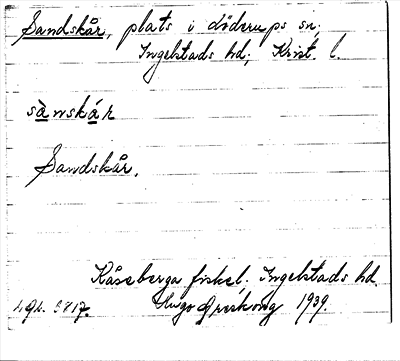 Sandskår, plats i döderups sn;
Ingelstads hd; Krist. l.
sànskár
Sandskår.
Kåseberga fiskel. Ingelstads hd
Hugo Areskoug 1939.